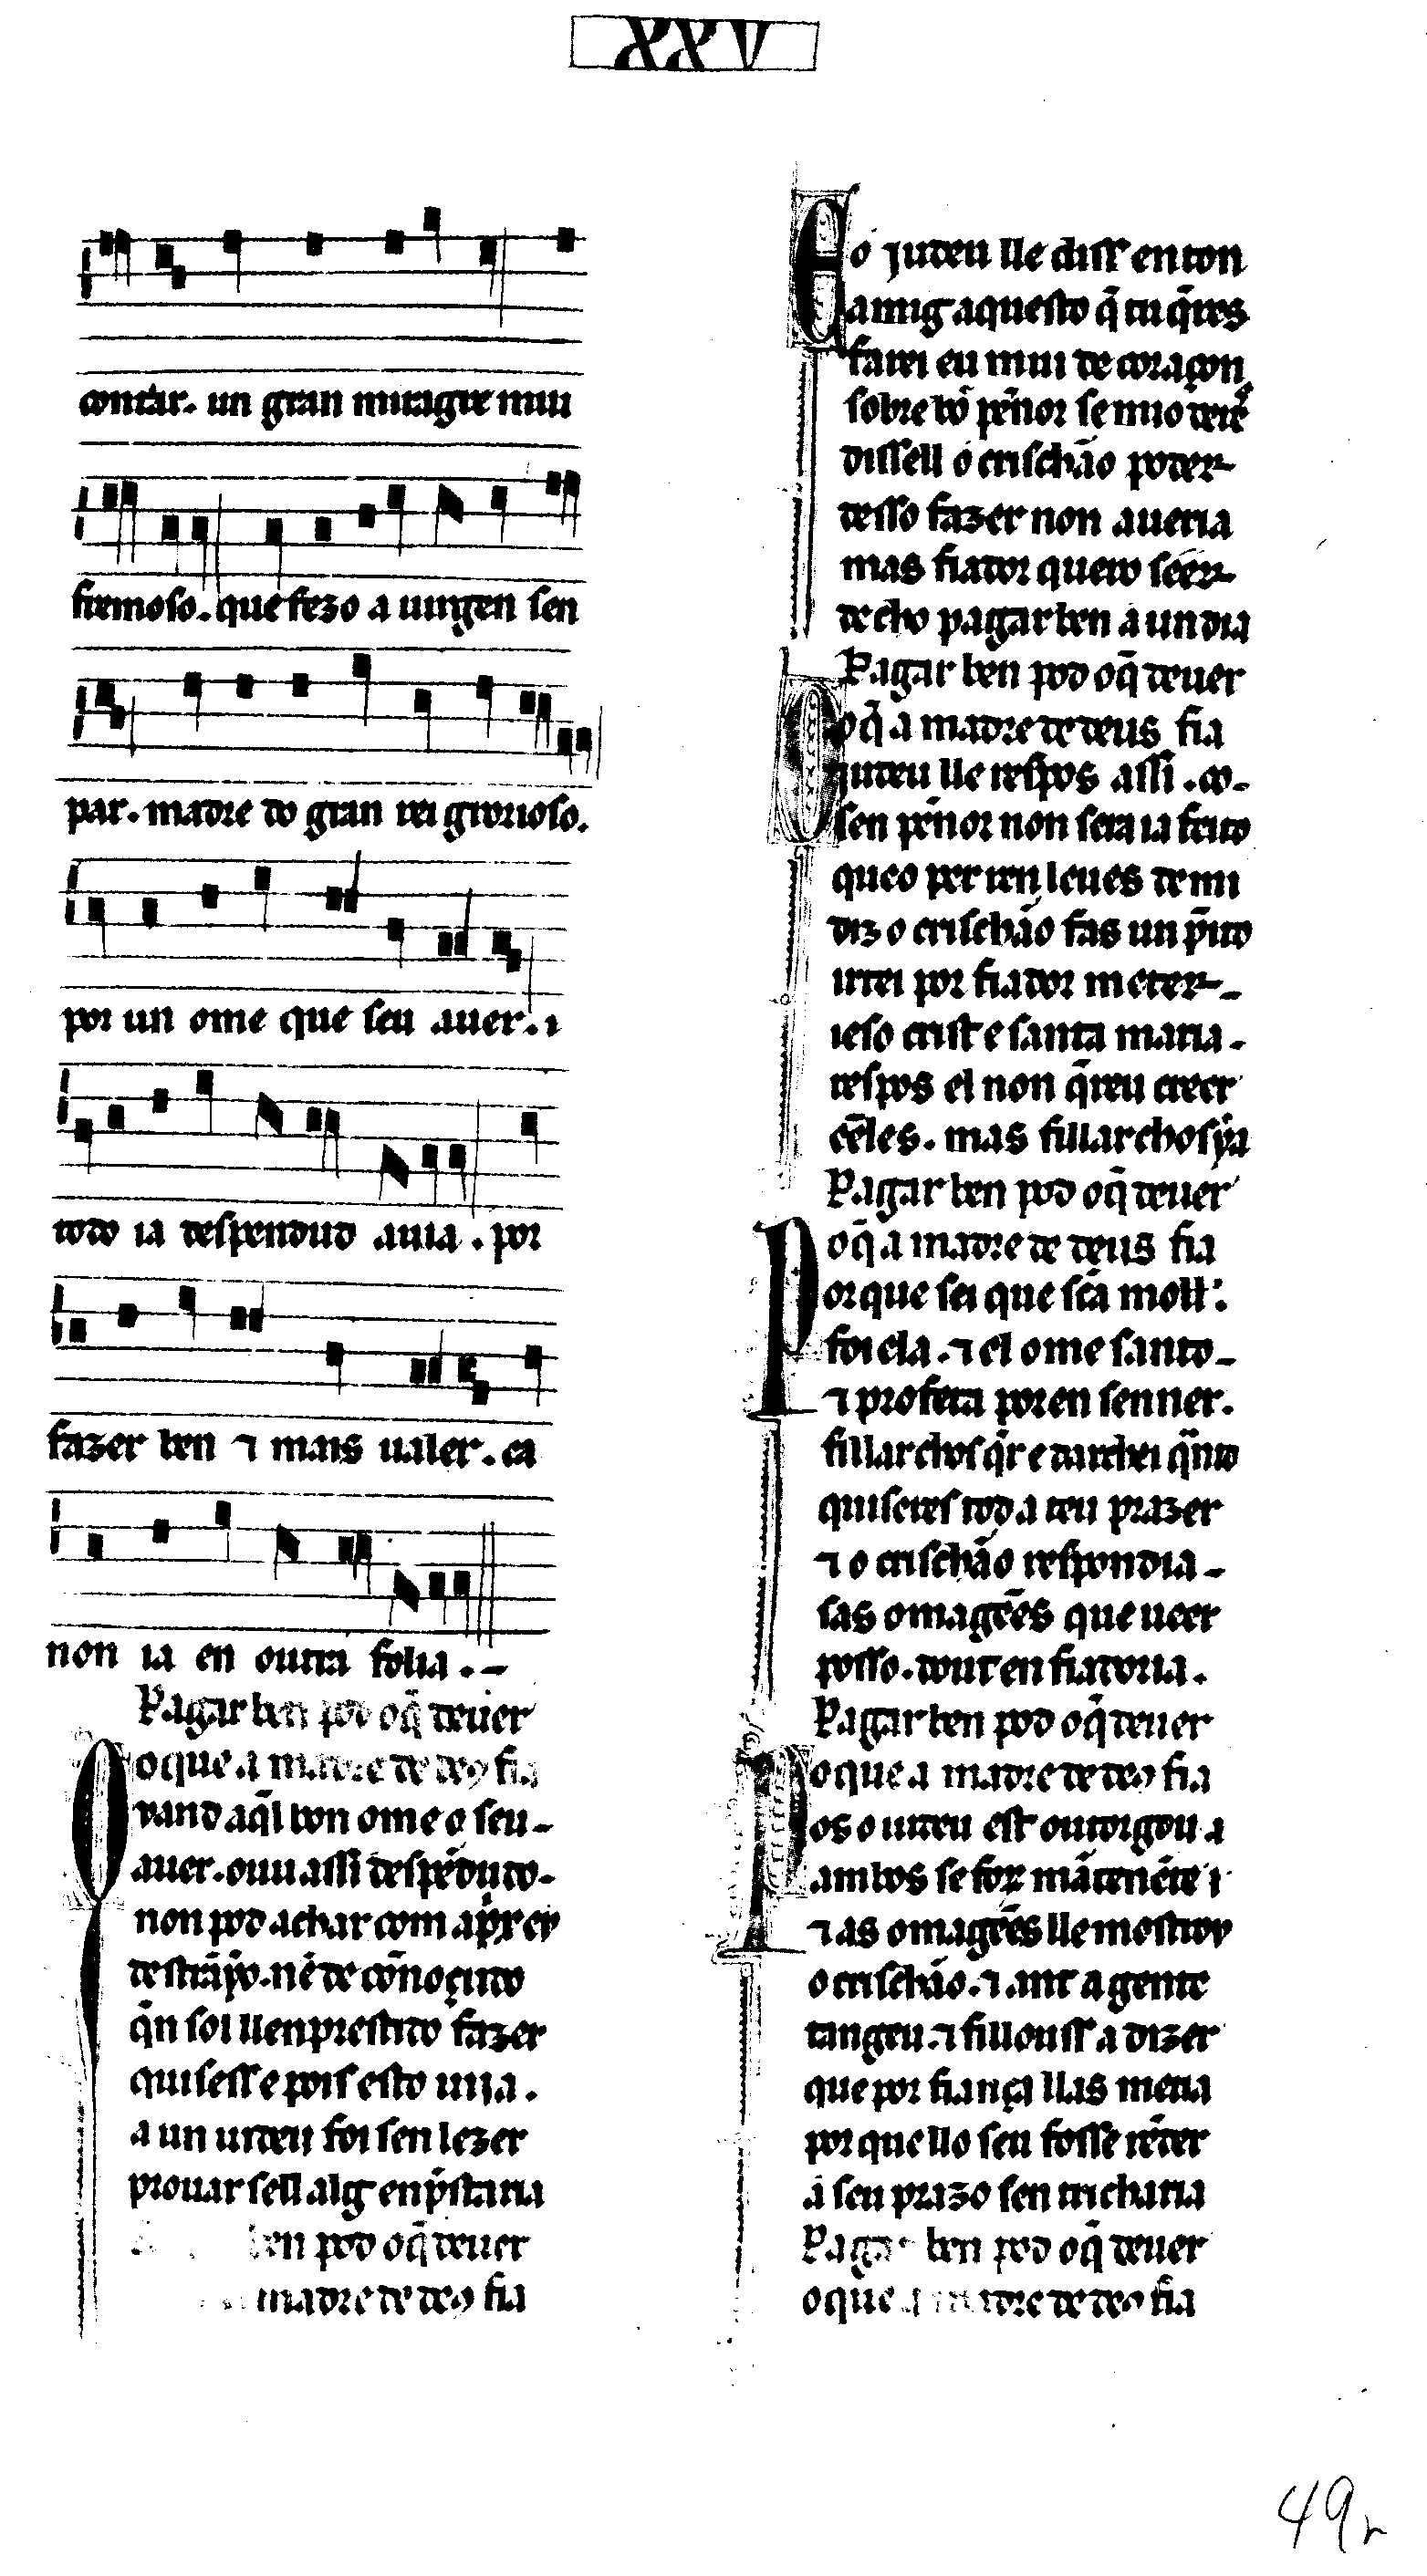 XXV
contar. un gran miragre mui
fremoso. que fezo a uirgen sen
par. madre do gran rei grorioso.
por un ome que seu auer. ⁊
todo ia despendud auia. por
fazer ben ⁊ mais ualer. ca
non ia en outra folia. –
Pagar ben pod oq̃ deuer
o que a madre de deꝯ fia
Quand aq̃l bon ome o seu –
auer. ouu assi despẽdudo –
non pod achar com ap̃r ey
destrãyo. nẽ de cõnoçudo
q̃n sol llenprestido fazer
quisess e pois esto uija.
a un iudeu foi sen lezer
prouar sell alg enp̃staria
ben pod oq̃ deuer
madre de deꝯ fia
E o judeu lle diss enton
amig aquesto q̃ tu q̃res
farei eu mui de coraçon
sobre bõ pẽnor se mio derẽs
dissell o crischão poder –
desso fazer non aueria
mas fiador quero séer –
de cho pagar ben a un dia
Pagar ben pod oq̃ deuer
oq̃ a madre de deus fia
O judeu lle respos assi. co –
sen pẽnor non sera ia feito
queo per ren leues de mi
diz o crischão fas un p̃ito
irtei por fiador meter –
ieso crist e santa maria.
respos el non q̃reu creer
ẽeles. mas fillarchos ýa
Pagar ben pod oq̃ deuer
oq̃ a madre de deus fia
Porque sei que sc̃a moll̃.
foi ela. ⁊ el ome santo –
⁊ profeta poren senner.
fillar chos q̃r e darchei q̃nto
quiseres tod a teu prazer
⁊ o crischão respondia –
sas omagẽes que ueer
posso. dout en fiadoria.
Pagar ben pod oq̃ deuer
o que a madre de deꝯ fia
Pos o iudeu est outorgou a
ambos se forõ mãtenẽte i
⁊ as omagẽes lle mostrou
o crischão. ⁊ ant a gente
tangeu. ⁊ fillouss a dizer
que por fiança llas metia
por que llo seu fosse rẽder
á seu prazo sen tricharia
Pagar ben pod oq̃ deuer
o que a madre de deꝯ fia
49r